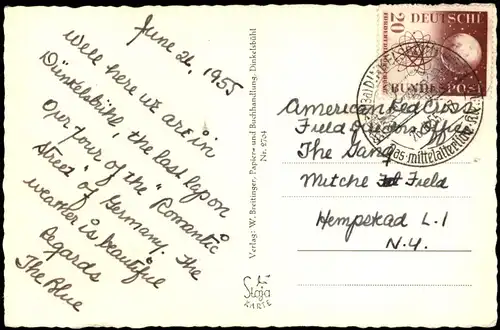 June 26, 1955
Well here we are in
Dünkelsbühl, the last lap on
Our Tour of the "Romantic
Street" of Germany. The
weather is beautiful
Regards
The Blue
Verlag: W. Breitinger, Papier- und Buchhandlung, Dinkelsbühl
Nr. 2704
Stoja
KARTE
20
DEUTSCHE
BUNDESPOST
Das mittelalterliche
American Red Cross
Field Directors Office
The Gang
Mitche Field
Hempstead L.I
N.Y.